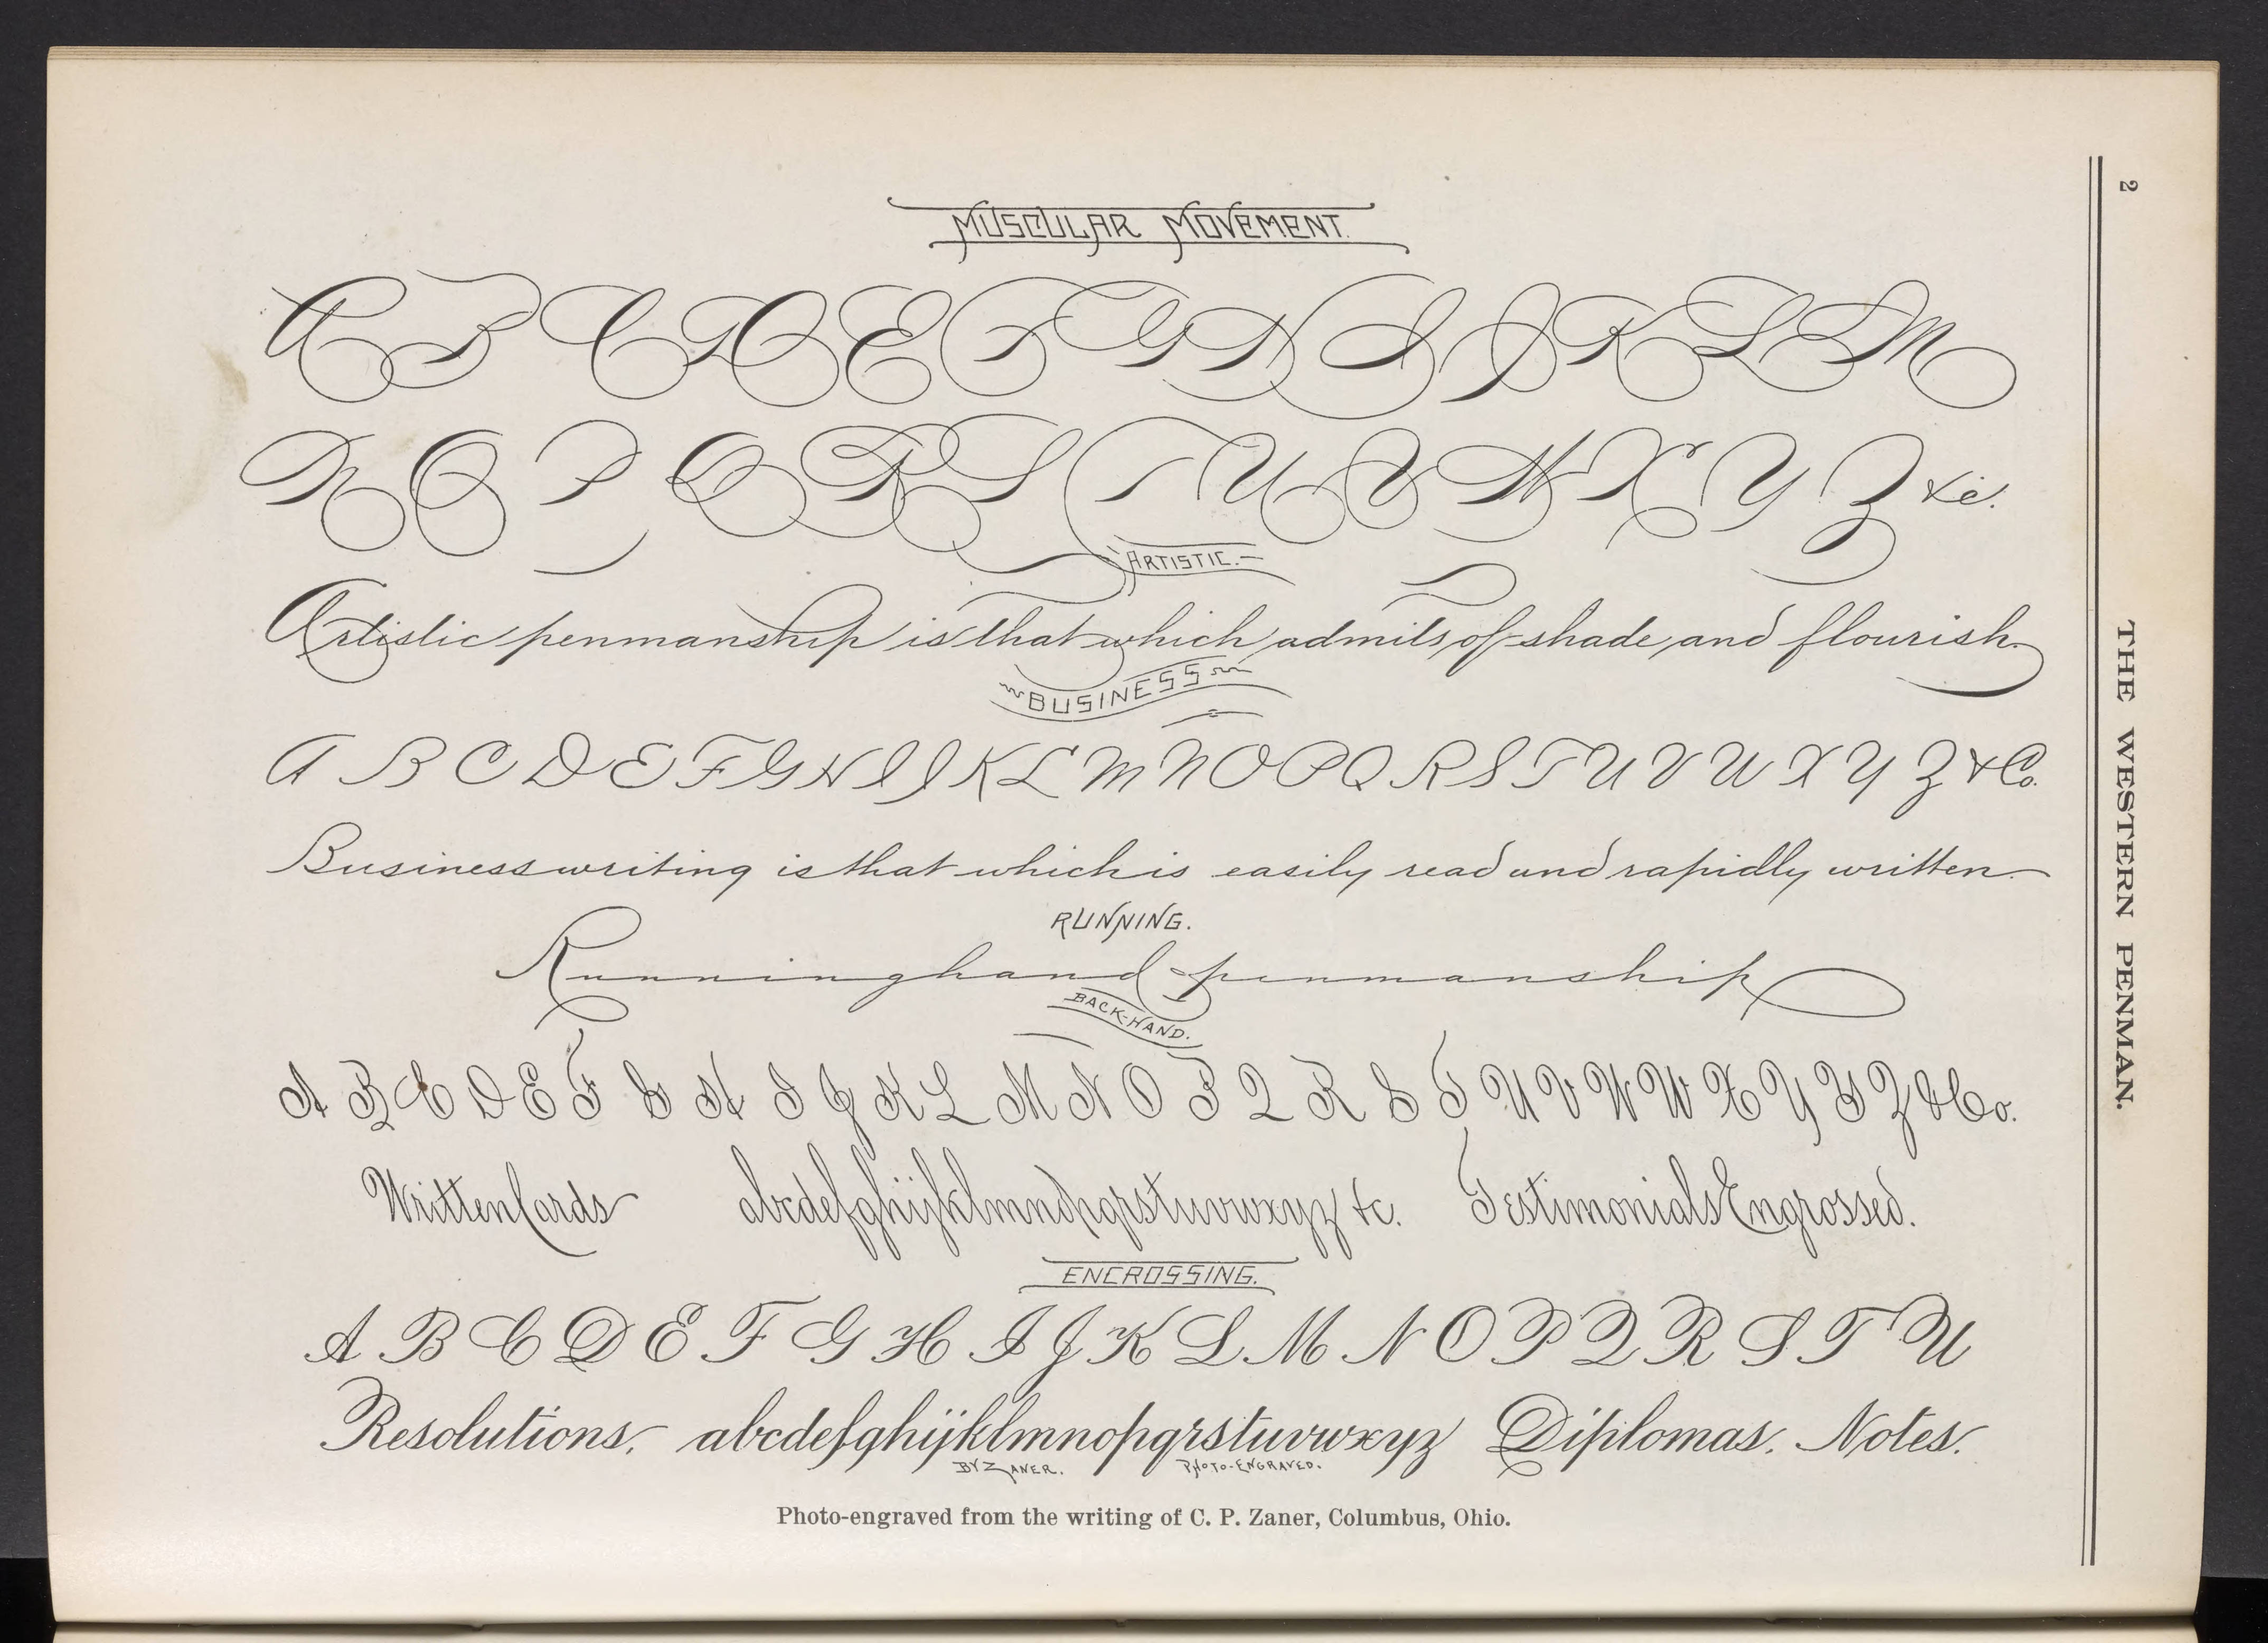 2
THE WESTERN PENMAN.
MUSCULAR MOVEMENT.
A B C D E F G H I J K L M
N O P Q R S T U V W X Y Z &c.
ARTISTIC.
Artistic penmanship is that which admits of shade and flourish.
BUSINESS
A B C D E F G H I J K L M N O P Q R S T U V W X Y Z & Co.
Business writing is that which is easily read and rapidly written.
RUNNING.
Running hand penmanship
BACK-HAND.
A B C D E F G H I J K L M N O P Q R S T U V W W X Y Y Z & Co.
Written Cards abcdefghijklmnopqrstuvwxyz &c. Testimonials Engrossed.
ENGROSSING.
A B C D E F G H I J K L M N O P Q R S T U
Resolutions, abcdefghijklmnopqrstuvwxyz Diplomas. Notes.
BY ZANER. PHOTO-ENGRAVED.
Photo-engraved from the writing of C. P. Zaner, Columbus, Ohio.